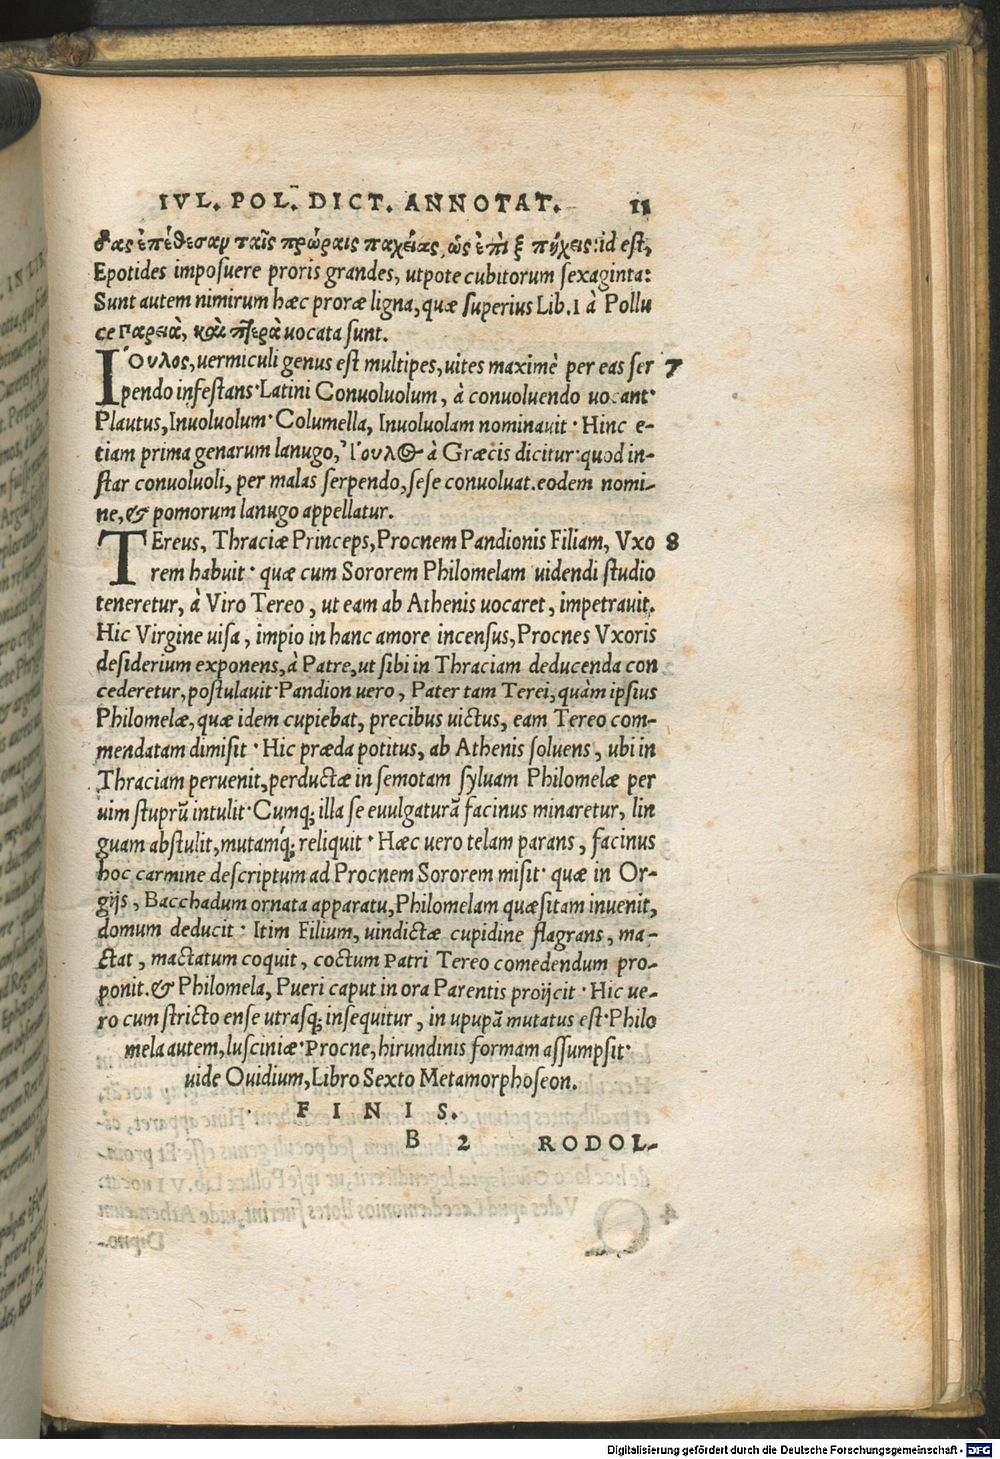 IVL. POL. DICT. ANNOTAT. 11
δας ἐπέθεσαν ταῖς πρώραις παχείας, ὡς ἐπὶ ξ πήχεις: id eſt,
Epotides impoſuere proris grandes, utpote cubitorum ſexaginta:
Sunt autem nimirum hæc proræ ligna, quæ ſuperius Lib. 1 à Pollu
ce παρειὰ, καὶ πτερὰ uocata ſunt.
ἸΟυλος, uermiculi genus eſt multipes, uites maximè per eas ſer 7
pendo infeſtans· Latini Conuoluolum, à conuoluendo uocant·
Plautus, Inuoluolum· Columella, Inuoluolam nominauit· Hinc e-
tiam prima genarum lanugo, Ἴουλος à Græcis dicitur: quod in-
ſtar conuoluoli, per malas ſerpendo, ſeſe conuoluat. eodem nomi-
ne, & pomorum lanugo appellatur.
TEreus, Thraciæ Princeps, Procnem Pandionis Filiam, Vxo 8
rem habuit· quæ cum Sororem Philomelam uidendi ſtudio
teneretur, à Viro Tereo, ut eam ab Athenis uocaret, impetrauit.
Hic Virgine uiſa, impio in hanc amore incenſus, Procnes Vxoris
deſiderium exponens, à Patre, ut ſibi in Thraciam deducenda con
cederetur, poſtulauit· Pandion uero, Pater tam Terei, quàm ipſius
Philomelæ, quæ idem cupiebat, precibus uictus, eam Tereo com-
mendatam dimiſit· Hic præda potitus, ab Athenis ſoluens, ubi in
Thraciam peruenit, perductæ in ſemotam ſyluam Philomelæ per
uim ſtuprũ intulit· Cumq; illa ſe euulgaturã facinus minaretur, lin
guam abſtulit, mutamq́; reliquit· Hæc uero telam parans, facinus
hoc carmine deſcriptum ad Procnem Sororem miſit· quæ in Or-
gijs, Bacchadum ornata apparatu, Philomelam quæſitam inuenit,
domum deducit· Itim Filium, uindictæ cupidine flagrans, ma-
ctat, mactatum coquit, coctum Patri Tereo comedendum pro-
ponit. & Philomela, Pueri caput in ora Parentis proijcit· Hic ue-
ro cum ſtricto enſe utraſq; inſequitur, in upupã mutatus eſt· Philo
mela autem, luſciniæ· Procne, hirundinis formam aſſumpſit·
uide Ouidium, Libro Sexto Metamorphoſeon.
F I N I S.
B 2 RODOL-
Digitalisierung gefördert durch die Deutsche Forschungsgemeinschaft - DFG